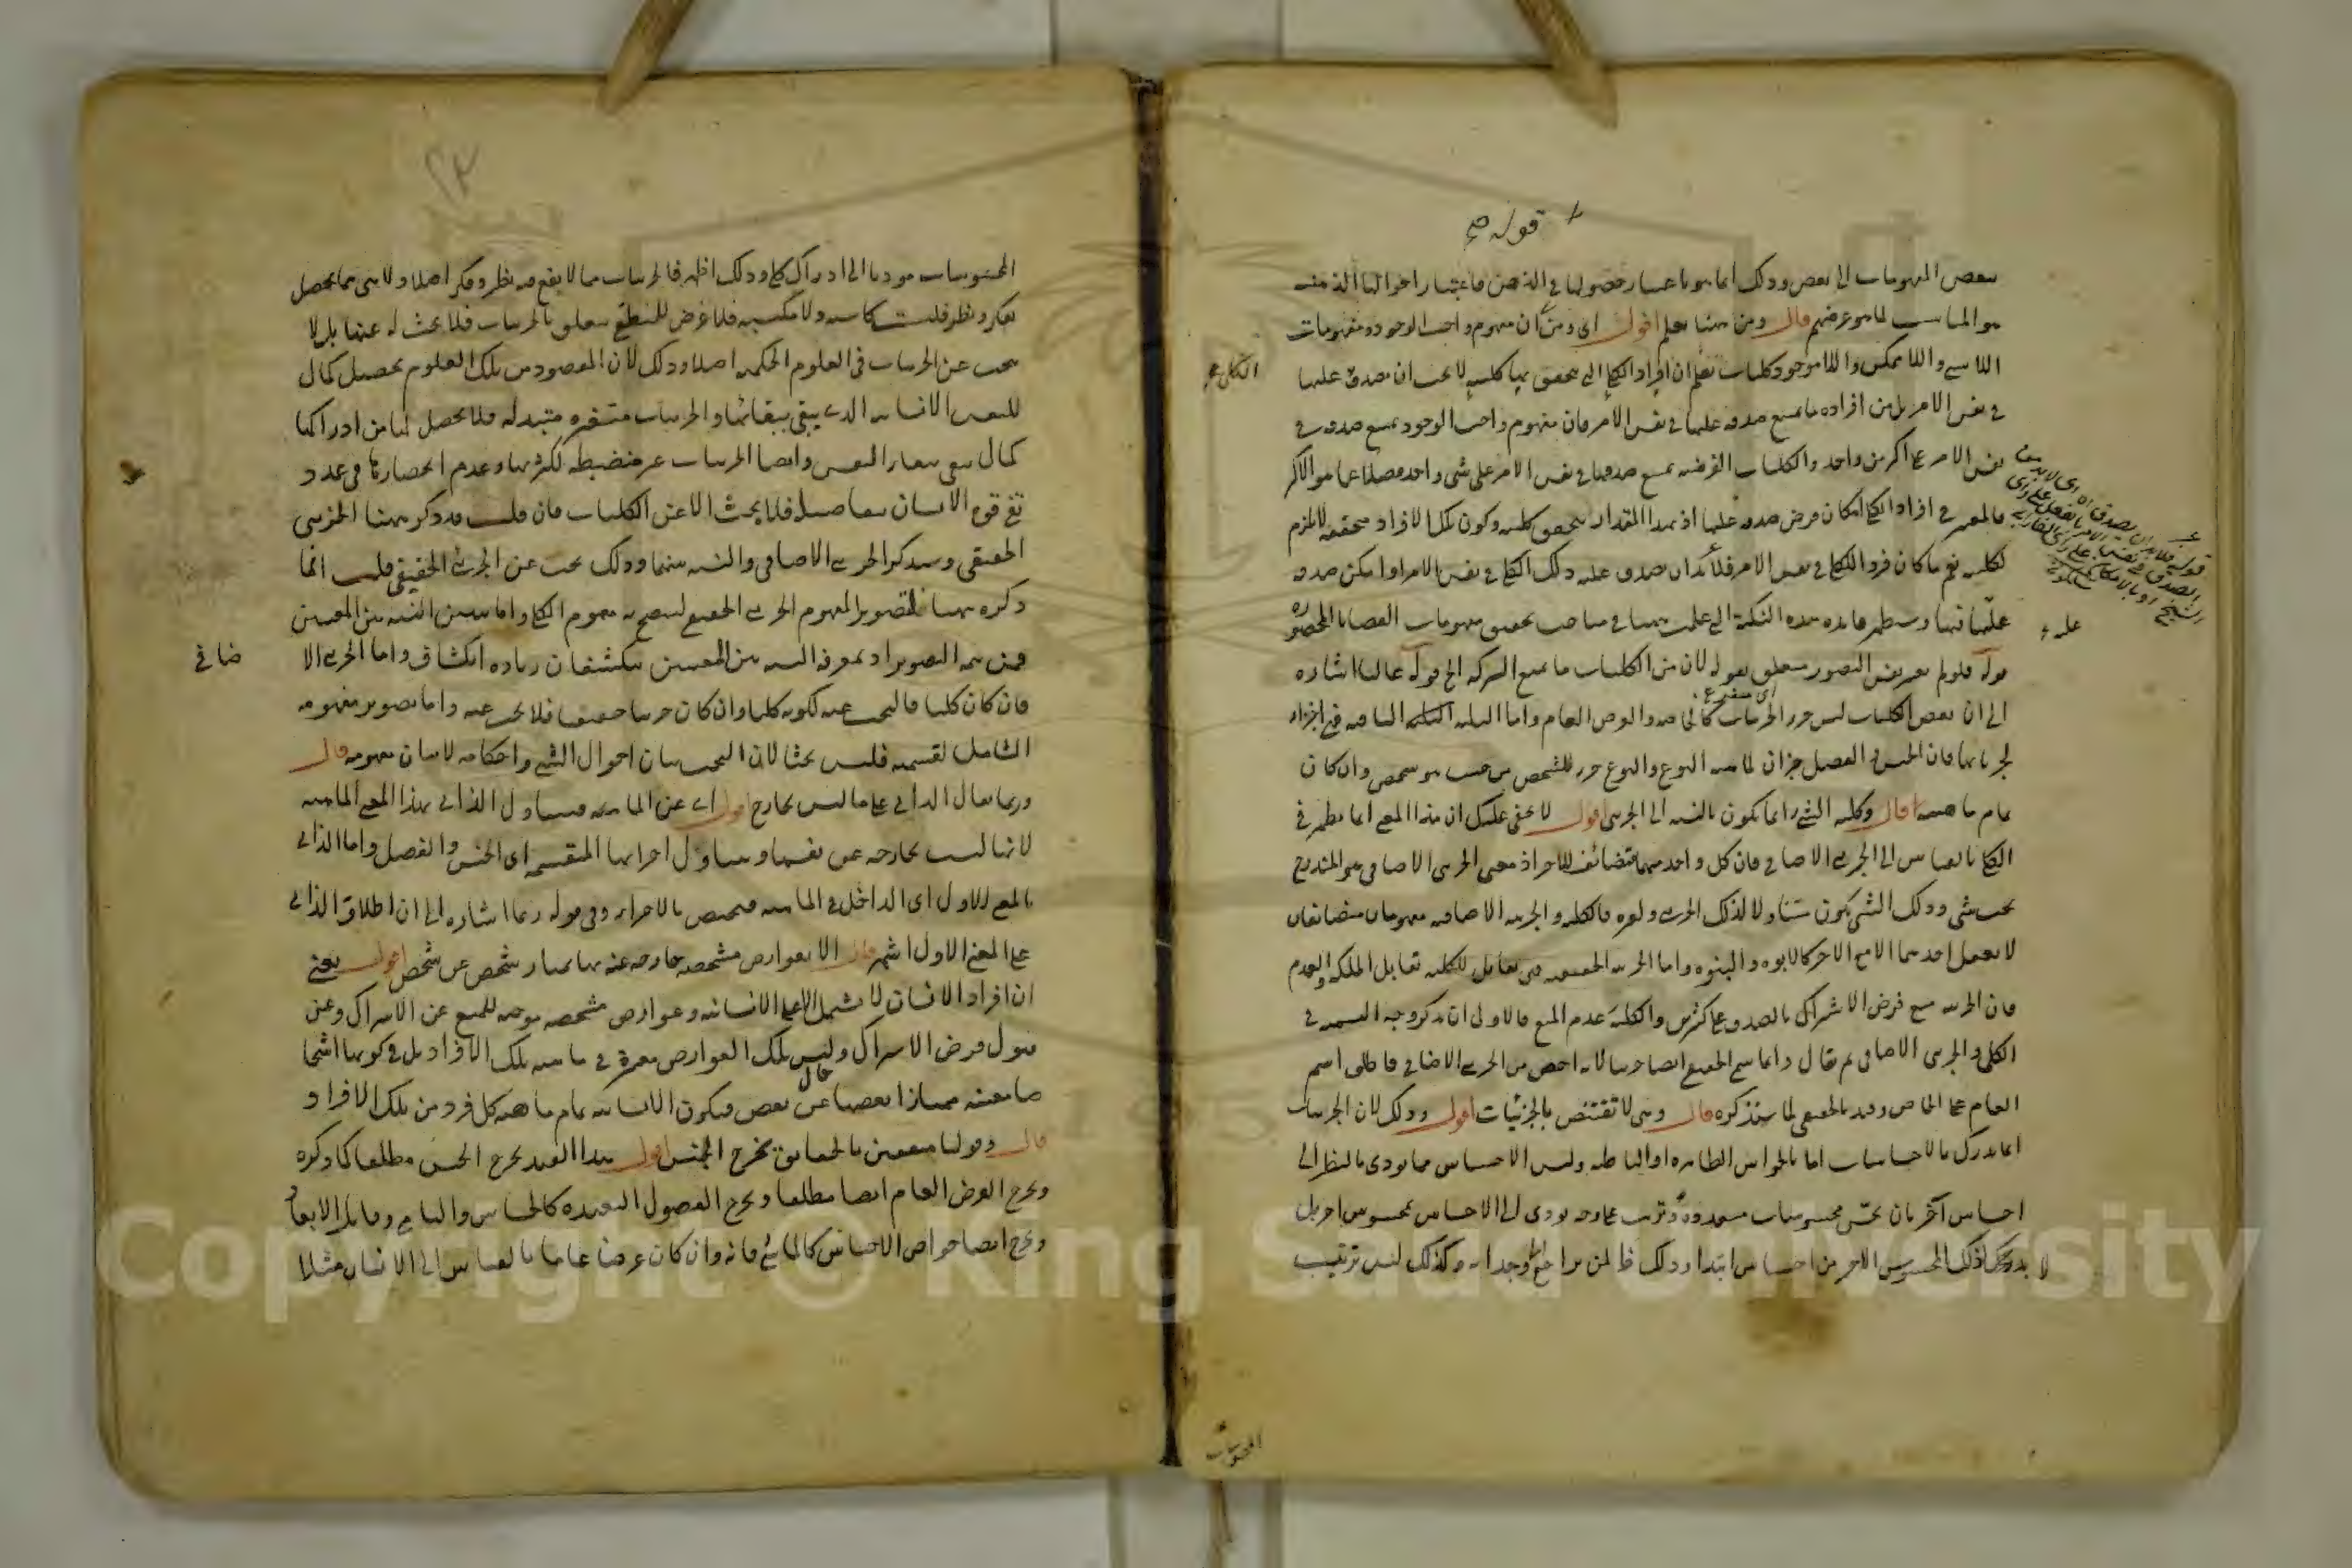 قوله
بعض المفهومات الى بعض وذلك انما هو باعتبار حصولها في الذهن فاعتبار احوالها الذهنية
هو المناسب لما هو غرضهم قال ومن ههنا يعلم اقول اى ومن ان مفهوم واجب الوجود ومفهومات
اللاشيء واللاممكن واللاموجود كليات تعلم ان افراد الكلي التي يتحقق بها كليته لا يجب ان يصدق عليها
الكلي
في نفس الامر بل من افراده ما يمتنع صدقه عليها في نفس الامر فان مفهوم واجب الوجود يمتنع صدقه في
نفس الامر على اكثر من واحد والكليات الفرضية يمتنع صدقها في نفس الامر على شيء واحد فضلا عما هو الاكثر
فالمعتبر في افراد الكلي امكان فرض صدقه عليها اذ بهذا المقدار يتحقق كليته وكون تلك الافراد متحققة لا يلزم
لكليته نعم ما كان فردا للكلي في نفس الامر فلا بد ان يصدق عليه ذلك الكلي في نفس الامر او امكن صدقه
عليها فيها وستظهر فائدة هذه النكتة التي علمت ههنا في مباحث تحقيق مفهومات القضايا المحصورة
قوله فلو لم يعتبر نفس التصور متعلق بقوله لان من الكليات ما يمنع الشركة الخ قوله غالبا اشارة
الى ان بعض الكليات ليس جزء الجزئيات كالخاصة والعرض العام واما الثلثة الباقية فهي اجزاء
لجزئياتها فان الجنس والفصل جزآن لماهية النوع والنوع جزء للشخص من حيث هو شخص وان كان
تمام ماهيته قال وكلية الشيء انما تكون بالنسبة الى الجزئي اقول لا يخفى عليك ان هذا المعنى انما يظهر في
الكلي بالقياس الى الجزئي الاضافي فان كل واحد منهما متضائف للآخر اذ معنى الجزئي الاضافي هو المندرج
تحت شيء وذلك الشيء يكون متناولا لذلك الجزئي ولغيره فالكلية والجزئية الاضافية مفهومان متضايفان
لا يعقل احدهما الا مع الآخر كالابوة والبنوة واما الجزئية الحقيقية فهي تقابل للكلية تقابل الملكة والعدم
فان الجزئية منع فرض الاشتراك بالصدق على كثيرين والكلية عدم المنع فالاولى ان يذكر وجه التسمية في
الكلي والجزئي الاضافي ثم يقال وانما سمي الحقيقي ايضا جزئيا لانه اخص من الجزئي الاضافي فاطلق اسم
العام على الخاص وقيد بالحقيقي لما سنذكره قال وهي لا تقتنص بالجزئيات اقول وذلك لان الجزئيات
انما تدرك بالاحساسات اما بالحواس الظاهرة او الباطنة وليس الاحساس مما يؤدي بالنظر الى
احساس آخر بان يحس محسوسات متعددة وترتب على وجه يؤدي الى الاحساس بمحسوس آخر بل
لا بد لذلك المحسوس الآخر من احساس ابتداء وذلك ظاهر لمن يراجع وجدانه وكذلك ليس ترتيب
المحسوسات
المحسوسات مؤديا الى ادراك كلي وذلك اظهر فالجزئيات مما لا يقع فيه نظر وفكر اصلا ولا هي مما يحصل
بفكر ونظر فليست كاسبة ولا مكتسبة فلا غرض للمنطقي متعلق بالجزئيات فلا بحث له عنها بل لا
يبحث عن الجزئيات في العلوم الحكمية اصلا وذلك لان المقصود من تلك العلوم تحصيل كمال
للنفس الانسانية الذي يبقى ببقائها والجزئيات متغيرة متبدلة فلا يحصل لها من ادراكها
كمال يبقى ببقاء النفس وايضا الجزئيات غير منضبطة لكثرتها وعدم انحصارها في عدد
تفي قوة الانسان بتفاصيله فلا يبحث الا عن الكليات فان قلت قد ذكر ههنا الجزئي
الحقيقي وسيذكر الجزئي الاضافي والنسبة بينهما وذلك بحث عن الجزئي الحقيقي قلت انما
ذكره ههنا تصويرا لمفهوم الجزئي الحقيقي ليتضح به مفهوم الكلي واما بيان النسبة بين المعنيين
فمن تتمة التصوير اذ بمعرفة النسبة بين المعنيين ينكشفان زيادة انكشاف واما الجزئي الا
ضافي
فان كان كليا فالبحث عنه لكونه كليا وان كان جزئيا حقيقيا فلا بحث عنه واما تصوير مفهومه
الشامل لقسميه فليس بحثا لان البحث بيان احوال الشيء واحكامه لا بيان مفهومه قال
وربما يقال الذاتي على ما ليس بخارج اقول اى عن الماهية فيتناول الذاتي بهذا المعنى الماهية
لانها ليست بخارجة عن نفسها ويتناول اجزائها المنقسمة اى الجنس والفصل واما الذاتي
بالمعنى الاول اى الداخل في الماهية فيختص بالاجزاء وفي قوله ربما اشارة الى ان اطلاق الذاتي
على المعنى الاول اشهر قال الا بعوارض مشخصة خارجة عنه بها يمتاز شخص عن شخص اقول يعني
ان افراد الانسان لا تشتمل الا على الانسانية وعوارض مشخصة موجبة للمنع عن الاشتراك وعن
قبول فرض الاشتراك وليس تلك العوارض معتبرة في ماهية تلك الافراد بل في كونها اشخا
صا معينة ممتازا بعضها عن بعض فيكون الانسانية تمام ماهية كل فرد من تلك الافراد
قال وقولنا متفقين بالحقائق يخرج الجنس اقول هذا القيد يخرج الجنس مطلقا كما ذكره
ويخرج العرض العام ايضا مطلقا ويخرج الفصول البعيدة كالحساس والنامي وقابل الابعاد
ويخرج ايضا خواص الاجناس كالماشي فانه وان كان عرضا عاما بالقياس الى الانسان مثلا